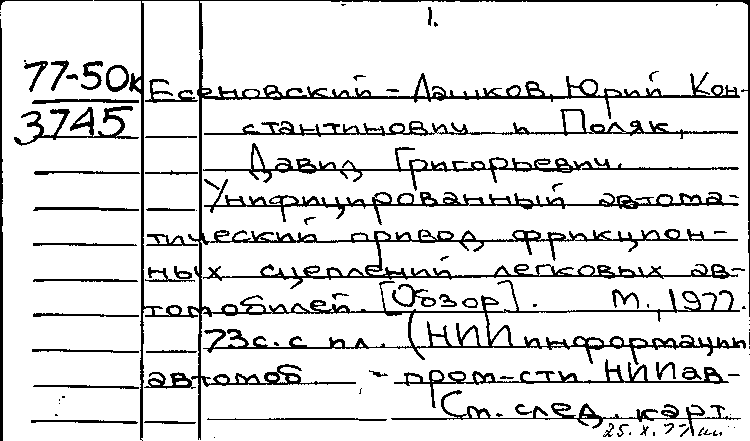 1.
77-50к
3745
Есеновский-Лашков, Юрий Кон-
стантинович и Поляк,
Давид Григорьевич.
Унифицированный автома-
тический привод фрикцион-
ных сцеплений легковых ав-
томобилей. [Обзор]. М., 1977.
73с. с ил. (НИИ информации
автомоб - пром-сти НИИав-
См. след. карт.
25. X. 77